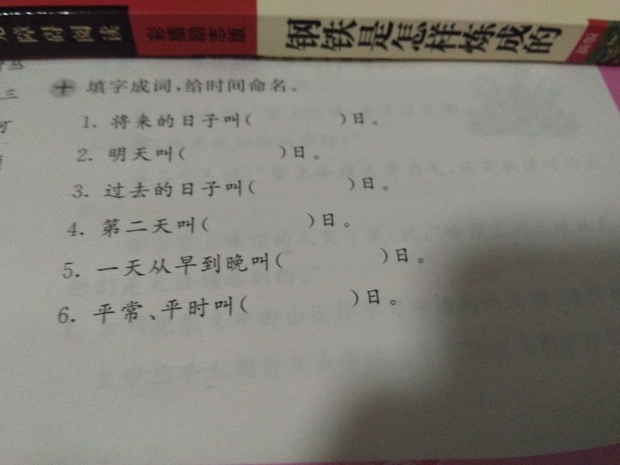 障碍阅读
彩插励志版
钢铁是怎样炼成的
十 填字成词,给时间命名。
1. 将来的日子叫( )日。
2. 明天叫( )日。
3. 过去的日子叫( )日。
4. 第二天叫( )日。
5. 一天从早到晚叫( )日。
6. 平常、平时叫( )日。
三
可